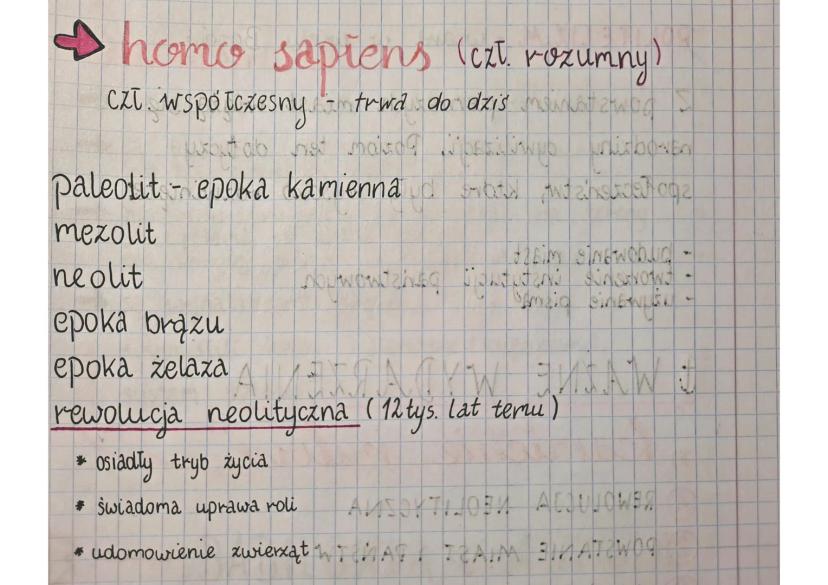 homo sapiens (czł. rozumny)
czł. współczesny - trwa do dziś
paleolit - epoka kamienna
mezolit
neolit
epoka brązu
epoka żelaza
rewolucja neolityczna (12 tys. lat temu)
* osiadły tryb życia
* świadoma uprawa roli
* udomowienie zwierząt